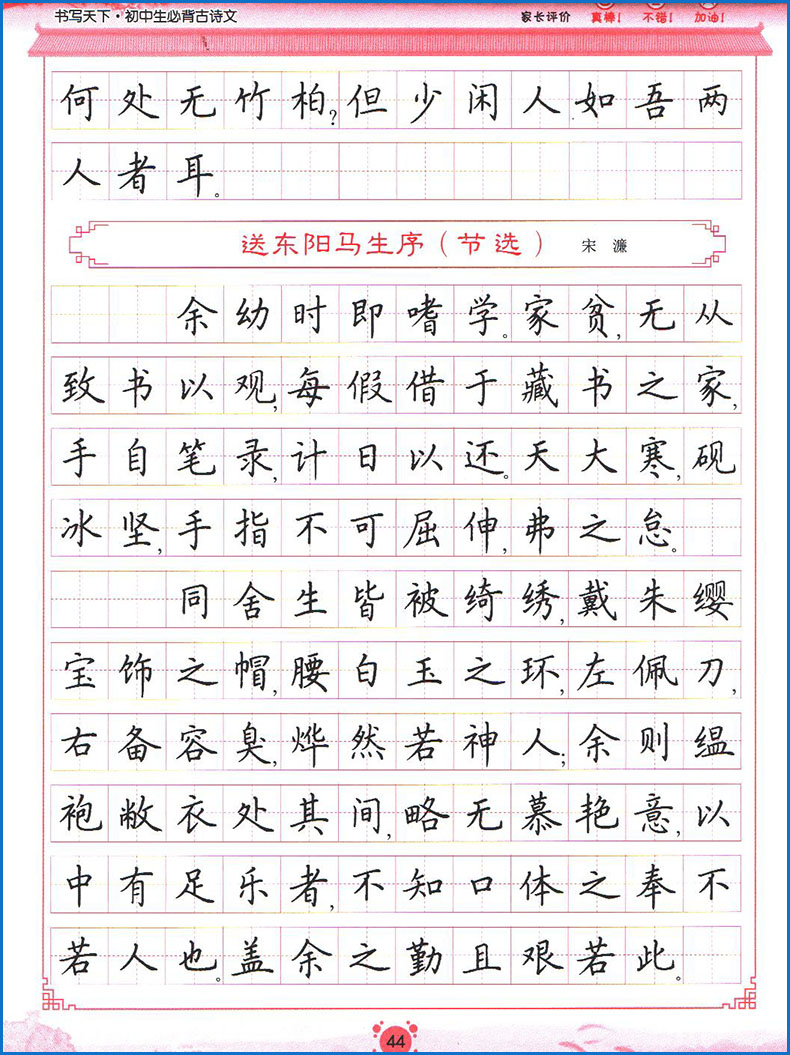 书写天下·初中生必背古诗文 家长评价 真棒! 不错! 加油!
何处无竹柏?但少闲人如吾两
人者耳。
送东阳马生序(节选) 宋 濂
余幼时即嗜学。家贫,无从
致书以观,每假借于藏书之家,
手自笔录,计日以还。天大寒,砚
冰坚,手指不可屈伸,弗之怠。
同舍生皆被绮绣,戴朱缨
宝饰之帽,腰白玉之环,左佩刀,
右备容臭,烨然若神人;余则缊
袍敝衣处其间,略无慕艳意,以
中有足乐者,不知口体之奉不
若人也。盖余之勤且艰若此。
44